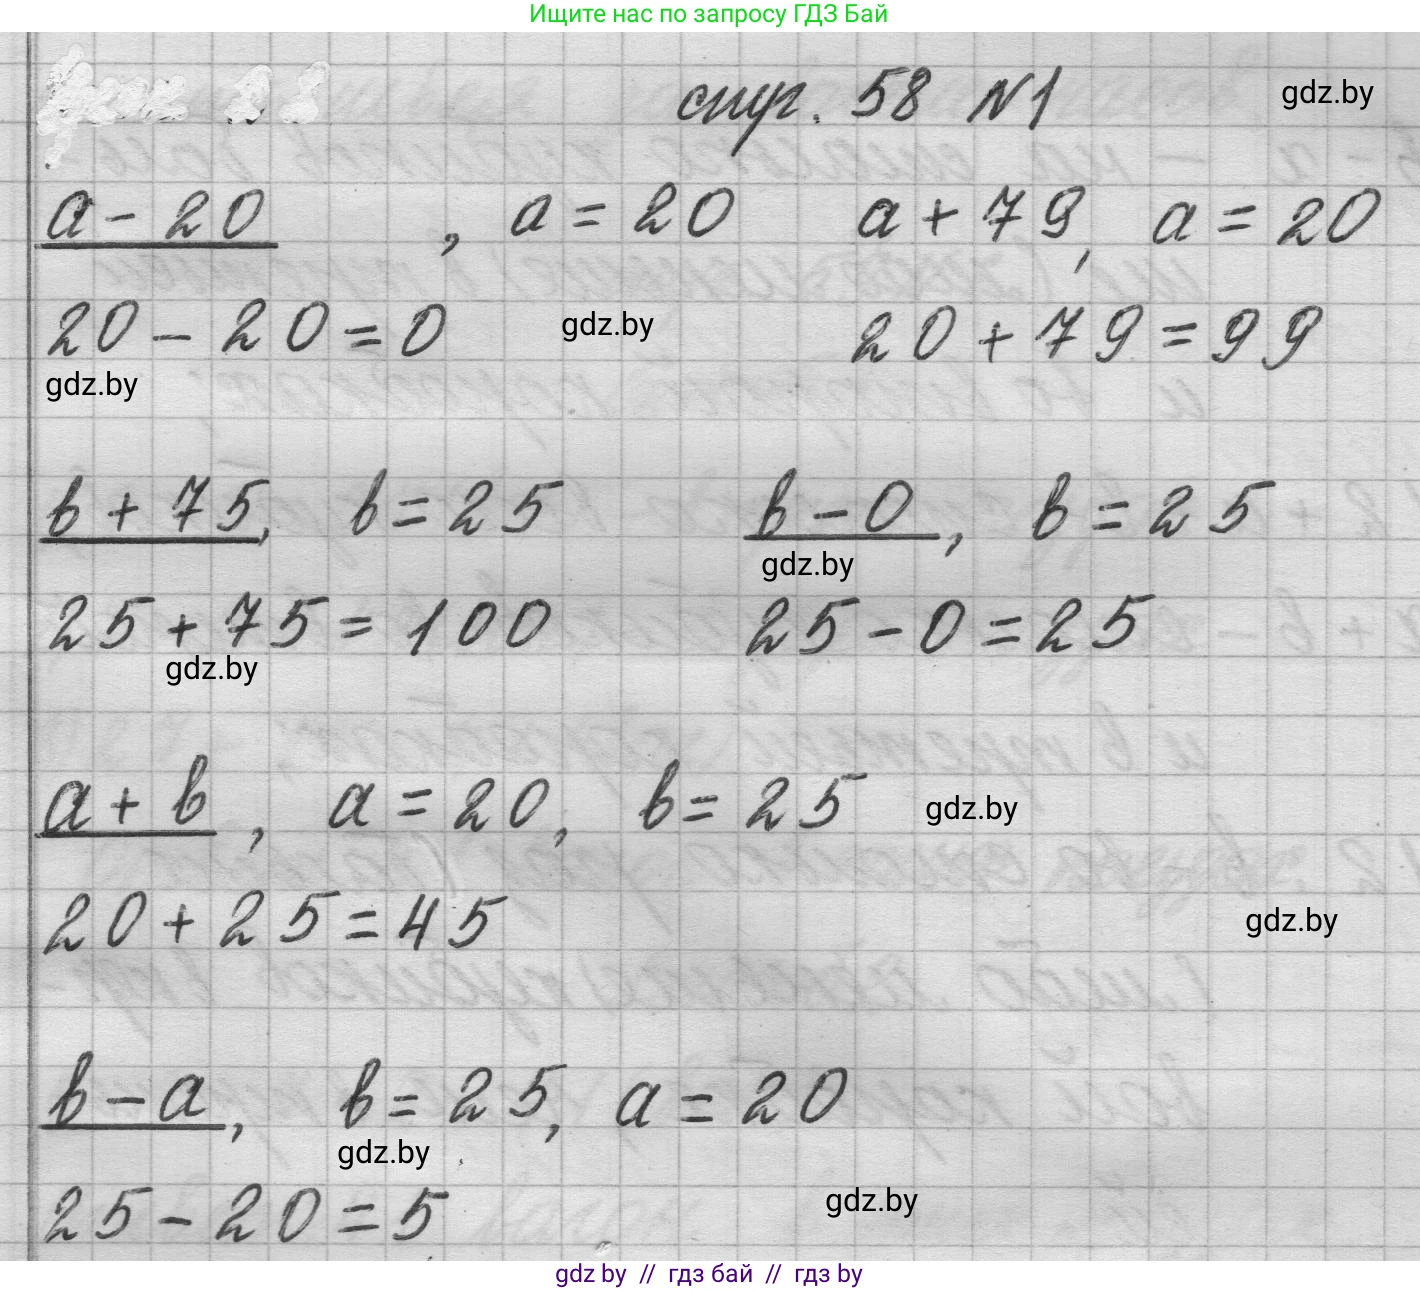 Ищите нас по запросу ГДЗ Бай
стр. 58 №1
gdz.by
a - 20 , a = 20 a + 79, a = 20
20 - 20 = 0 gdz.by 20 + 79 = 99
gdz.by
b + 75, b = 25 b - 0, b = 25
gdz.by
25 + 75 = 100 25 - 0 = 25
gdz.by
a + b, a = 20, b = 25 gdz.by
20 + 25 = 45 gdz.by
b - a, b = 25, a = 20
gdz.by
25 - 20 = 5 gdz.by
gdz by // гдз бай // гдз by